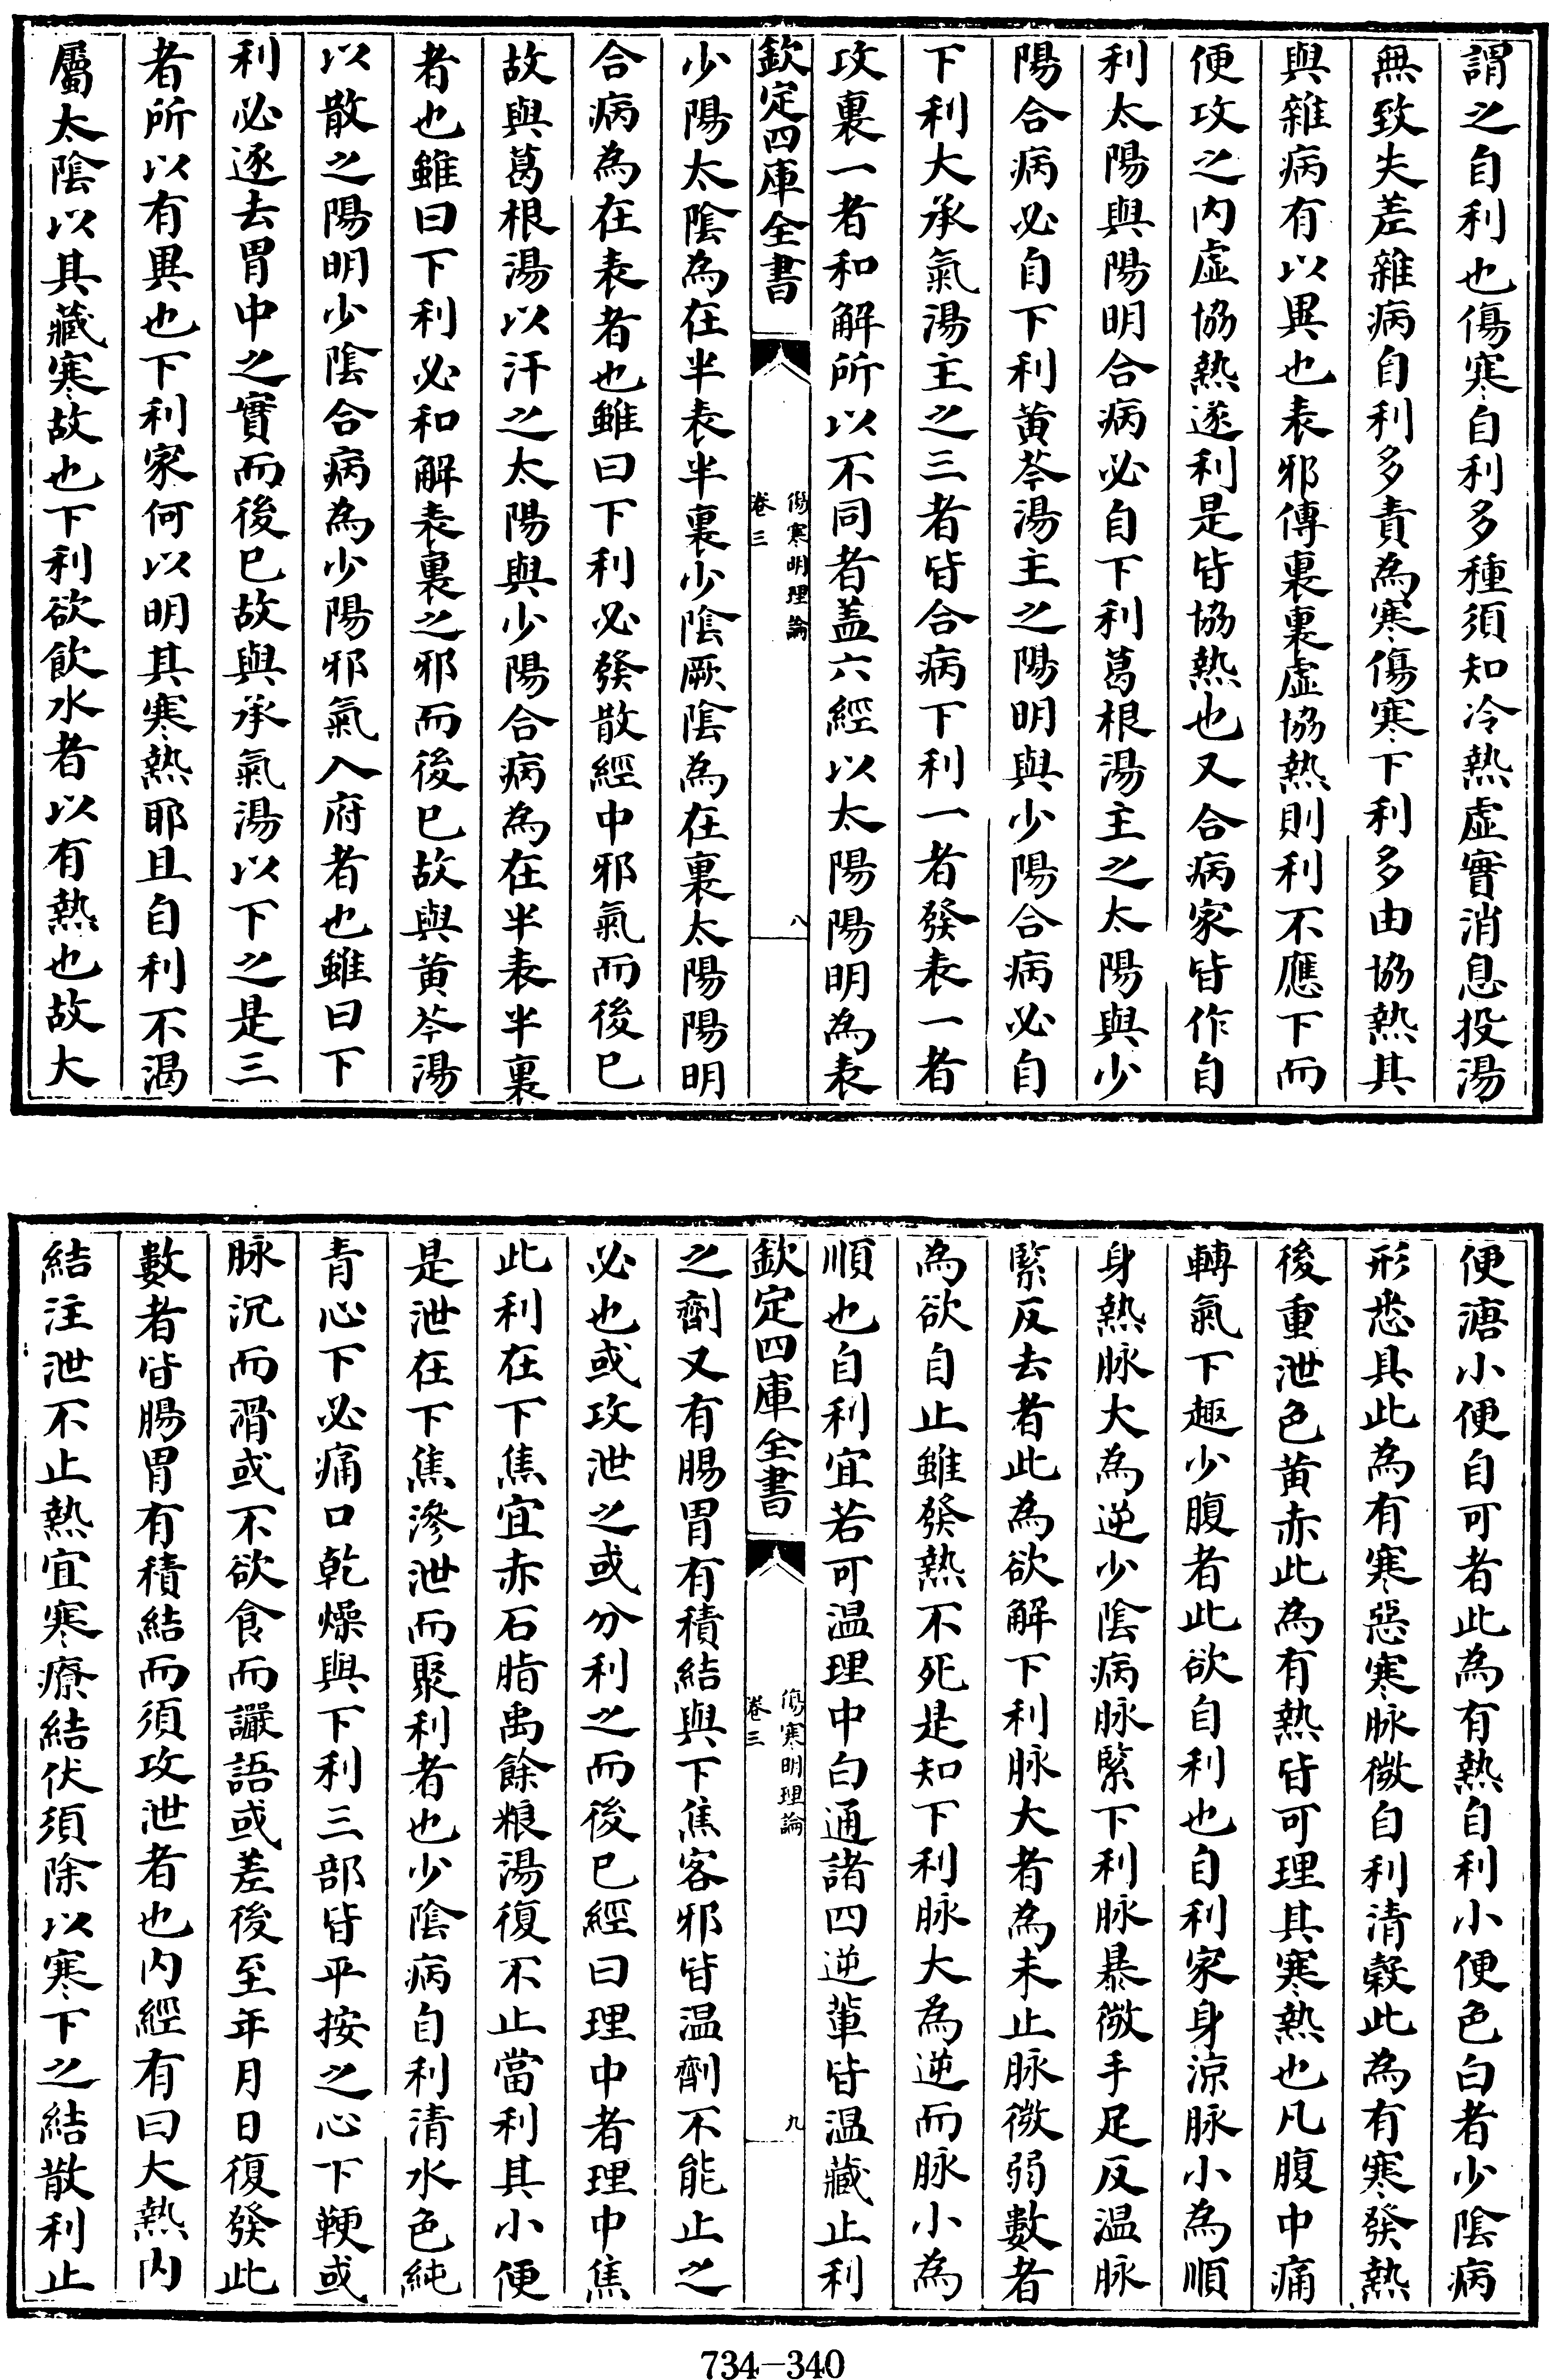 謂之自利也傷寒自利多種須知冷熱虛實消息投湯
無致失差雜病自利多責為寒傷寒下利多由協熱其
與雜病有以異也表邪傳裏裏虛協熱則利不應下而
便攻之内虛協熱遂利是皆協熱也又合病家皆作自
利太陽與陽明合病必自下利葛根湯主之太陽與少
陽合病必自下利黄芩湯主之陽明與少陽合病必自
下利大承氣湯主之三者皆合病下利一者發表一者
攻裏一者和解所以不同者盖六經以太陽陽明為表
欽定四庫全書
傷寒明理論
卷三
八
少陽太陰為在半表半裏少陰厥陰為在裏太陽陽明
合病為在表者也雖曰下利必發散經中邪氣而後已
故與葛根湯以汗之太陽與少陽合病為在半表半裏
者也雖曰下利必和解表裏之邪而後已故與黄芩湯
以散之陽明少陰合病為少陽邪氣入府者也雖曰下
利必逐去胃中之實而後已故與承氣湯以下之是三
者所以有異也下利家何以明其寒熱耶且自利不渴
屬太陰以其藏寒故也下利欲飲水者以有熱也故大
便溏小便自可者此為有熱自利小便色白者少陰病
形悉具此為有寒惡寒脉微自利清穀此為有寒發熱
後重泄色黄赤此為有熱皆可理其寒熱也凡腹中痛
轉氣下趣少腹者此欲自利也自利家身涼脉小為順
身熱脉大為逆少陰病脉緊下利脉暴微手足反温脉
緊反去者此為欲解下利脉大者為未止脉微弱數者
為欲自止雖發熱不死是知下利脉大為逆而脉小為
順也自利宜若可温理中白通諸四逆軰皆温藏止利
欽定四庫全書
傷寒明理論
卷三
九
之劑又有腸胃有積結與下焦客邪皆温劑不能止之
必也或攻泄之或分利之而後已經曰理中者理中焦
此利在下焦宜赤石脂禹餘粮湯復不止當利其小便
是泄在下焦滲泄而聚利者也少陰病自利清水色純
青心下必痛口乾燥與下利三部皆平按之心下鞕或
脉沉而滑或不欲食而讝語或差後至年月日復發此
數者皆腸胃有積結而須攻泄者也内經有曰大熱内
結注泄不止熱宜寒療結伏須除以寒下之結散利止
734-340